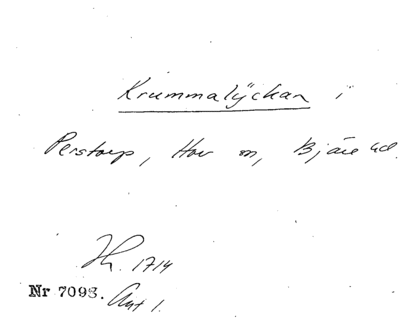 Krummalÿckan i
Perstorp, Hov sn, Bjäre hd.
Jh. 1714
Nr 7098. Ant 1.